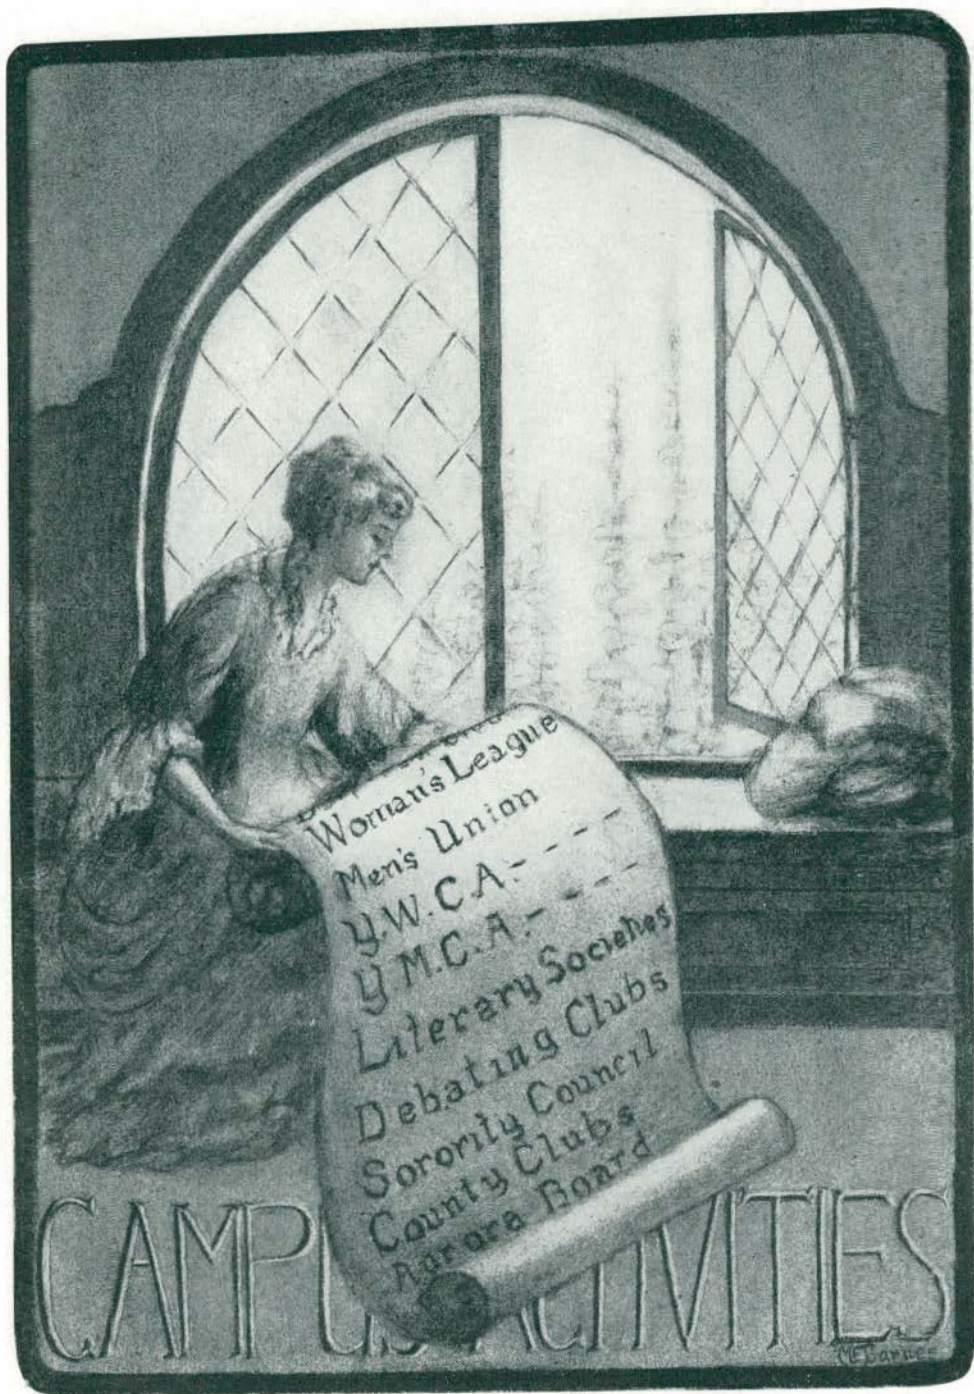 Woman's League
Men's Union
Y.W.C.A. - - - -
Y M.C.A. - - - -
Literary Societies
Debating Clubs
Sorority Council
County Clubs
Aurora Board
CAMPUS ACTIVITIES